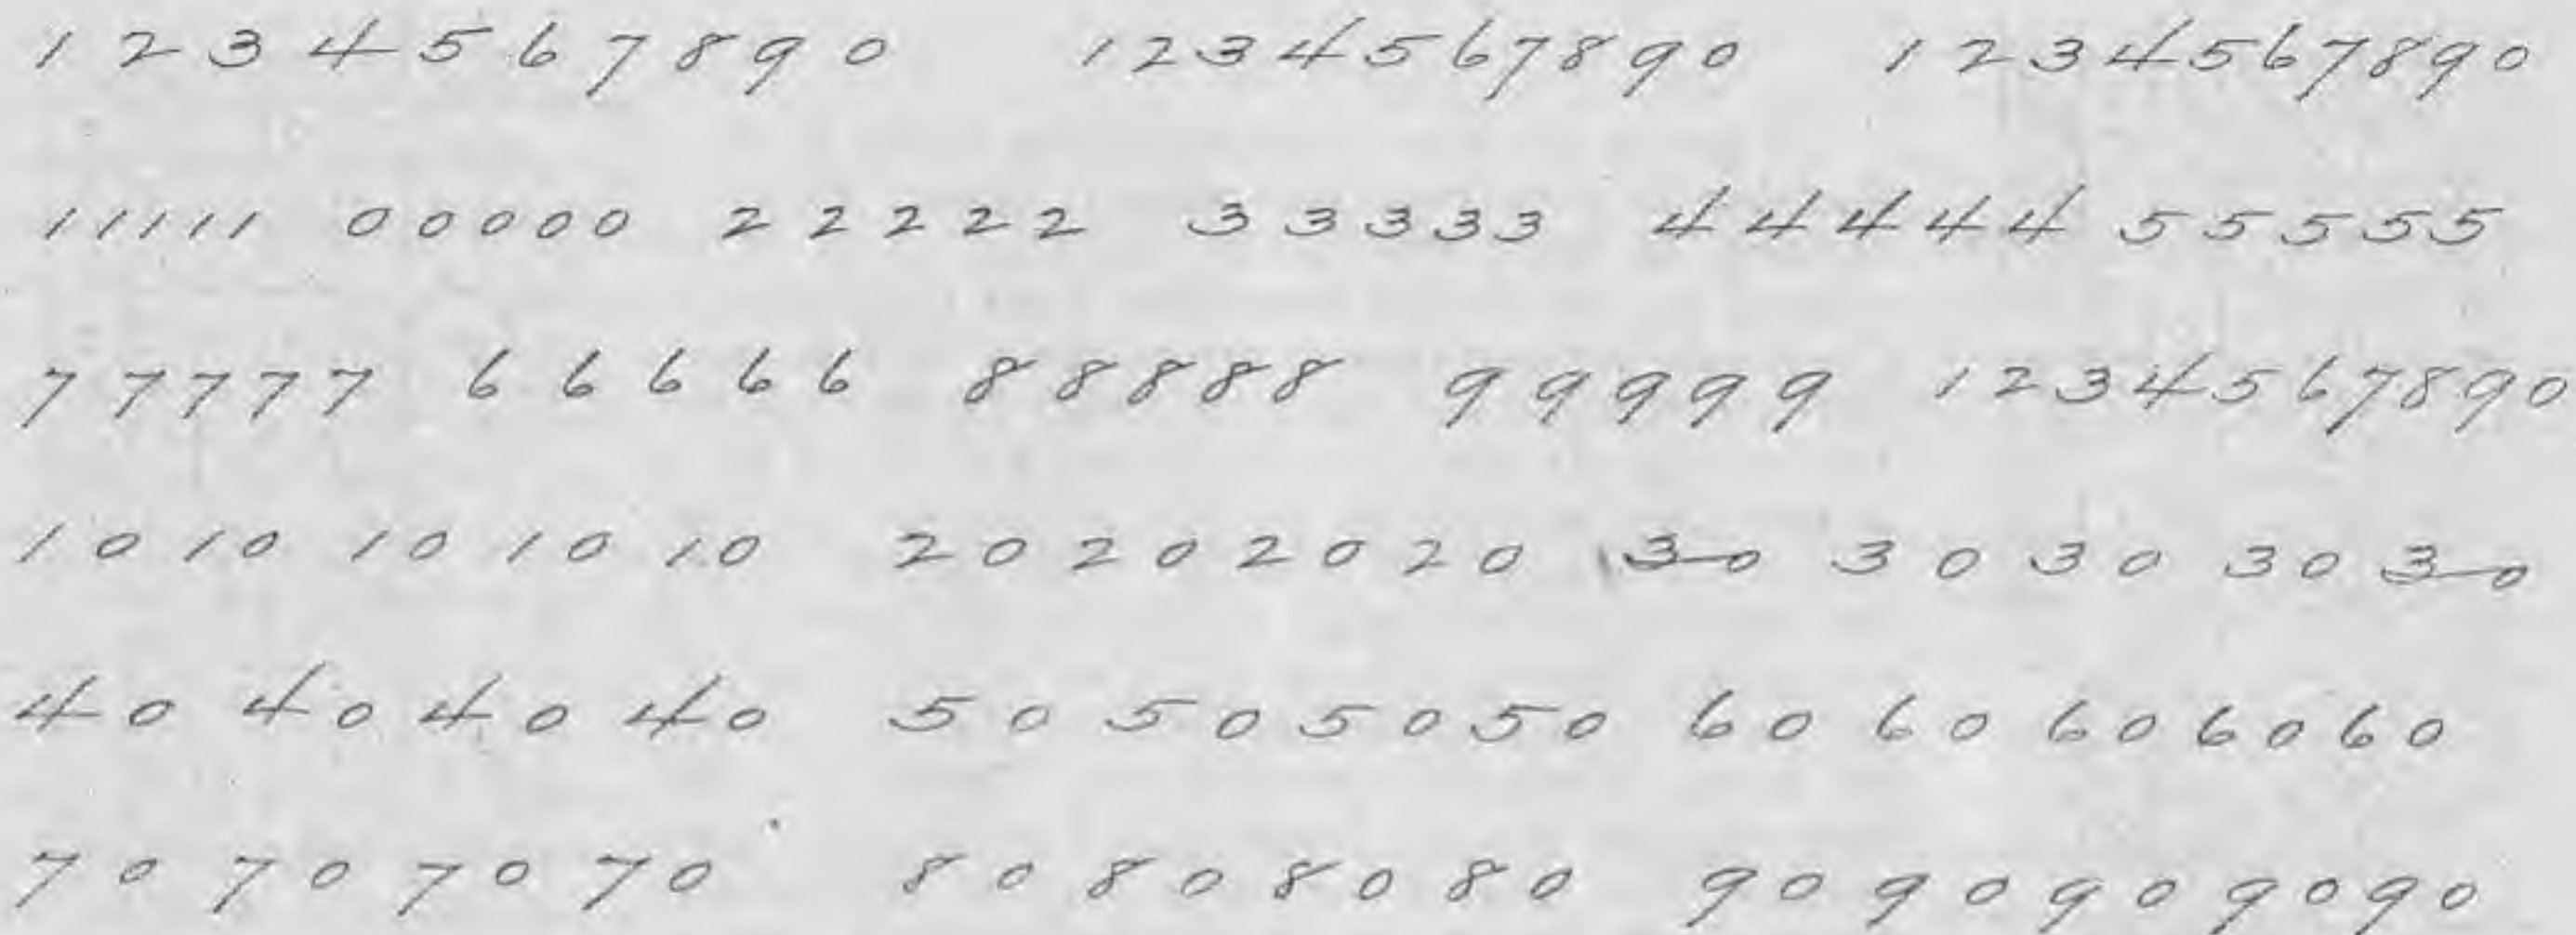 1 2 3 4 5 6 7 8 9 0 1 2 3 4 5 6 7 8 9 0 1 2 3 4 5 6 7 8 9 0
1 1 1 1 1 0 0 0 0 0 2 2 2 2 2 3 3 3 3 3 4 4 4 4 4 5 5 5 5 5
7 7 7 7 7 6 6 6 6 6 8 8 8 8 8 9 9 9 9 9 1 2 3 4 5 6 7 8 9 0
10 10 10 10 10 20 20 20 20 30 30 30 30 30
40 40 40 40 50 50 50 50 60 60 60 60 60
70 70 70 70 80 80 80 80 90 90 90 90 90